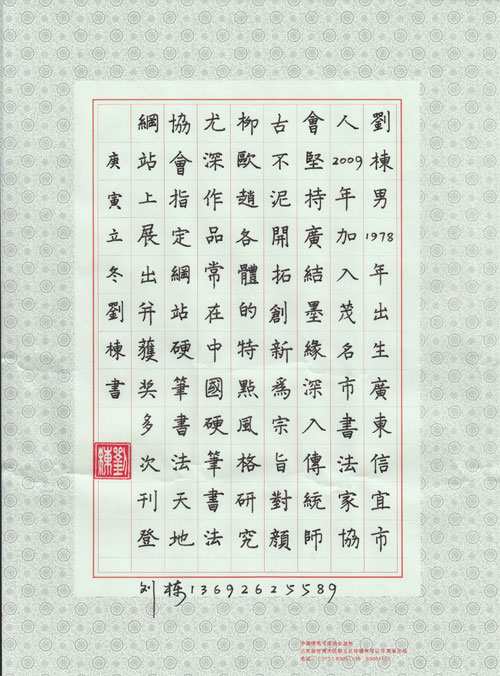 劉棟男1978年出生廣東信宜市
人2009年加入茂名市書法家協
會堅持廣結墨緣深入傳統師
古不泥開拓創新為宗旨對顏
柳歐趙各體的特點風格研究
尤深作品常在中國硬筆書法
協會指定網站硬筆書法天地
網站上展出并獲奖多次刊登
庚寅立冬劉棟書
劉棟
刘栋13692625589